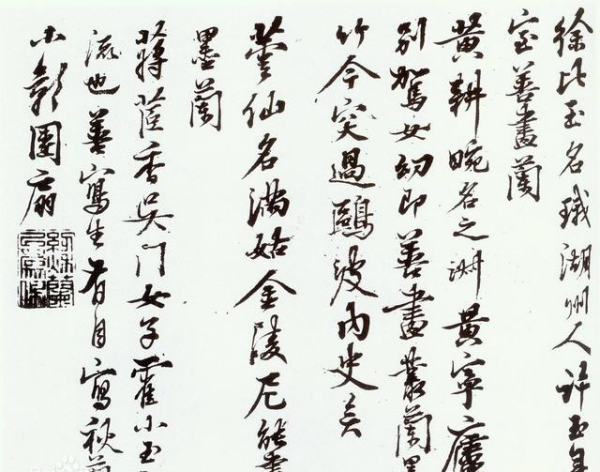 徐比玉名珴湖州人許玉年
室善畫蘭
黃耕畹名之淑黃寧廬
別駕女幼即善畫叢蘭墨
竹今突過鷗波內史矣
仙名滿姑金陵尼能畫
墨蘭
蔣香吳門女子霍小玉
流也善寫生有自寫秋蘭
小影團扇